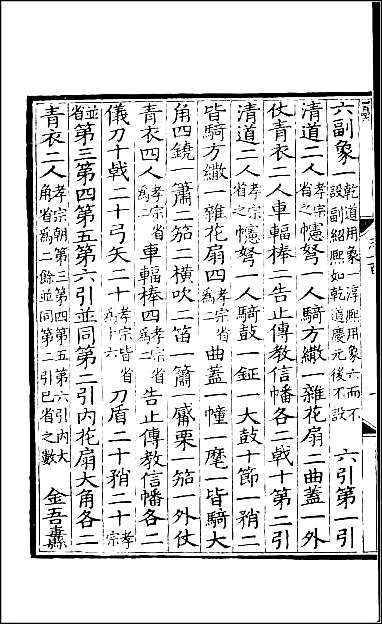 六副象乾道用象一淳熙用象六而不設副紹熙如乾道慶元後不設　六引第一引
清道二人孝宗省之幰弩一人騎方繖一雜花扇二曲蓋一外
仗青衣二人車輻棒二告止傳教信幡各二戟十第二引
清道二人孝宗省之幰弩一人騎鼓一鉦一大鼓十節一矟二
皆騎方繖一雜花扇四孝宗省爲二曲蓋一幢一麾一皆騎大
角四鐃一簫二笳二橫吹二笛一簫一觱栗一笳一外仗
青衣四人孝宗省爲二車輻棒四孝宗省爲二告止傳教信幡各二
儀刀十戟二十弓矢二十孝宗皆省爲十六刀盾二十矟二十孝宗
並省第三第四第五第六引並同第二引内花扇大角各二
青衣二人孝宗朝第三第四第五第六引内大角省爲二餘並同第二引已省之數　金吾纛